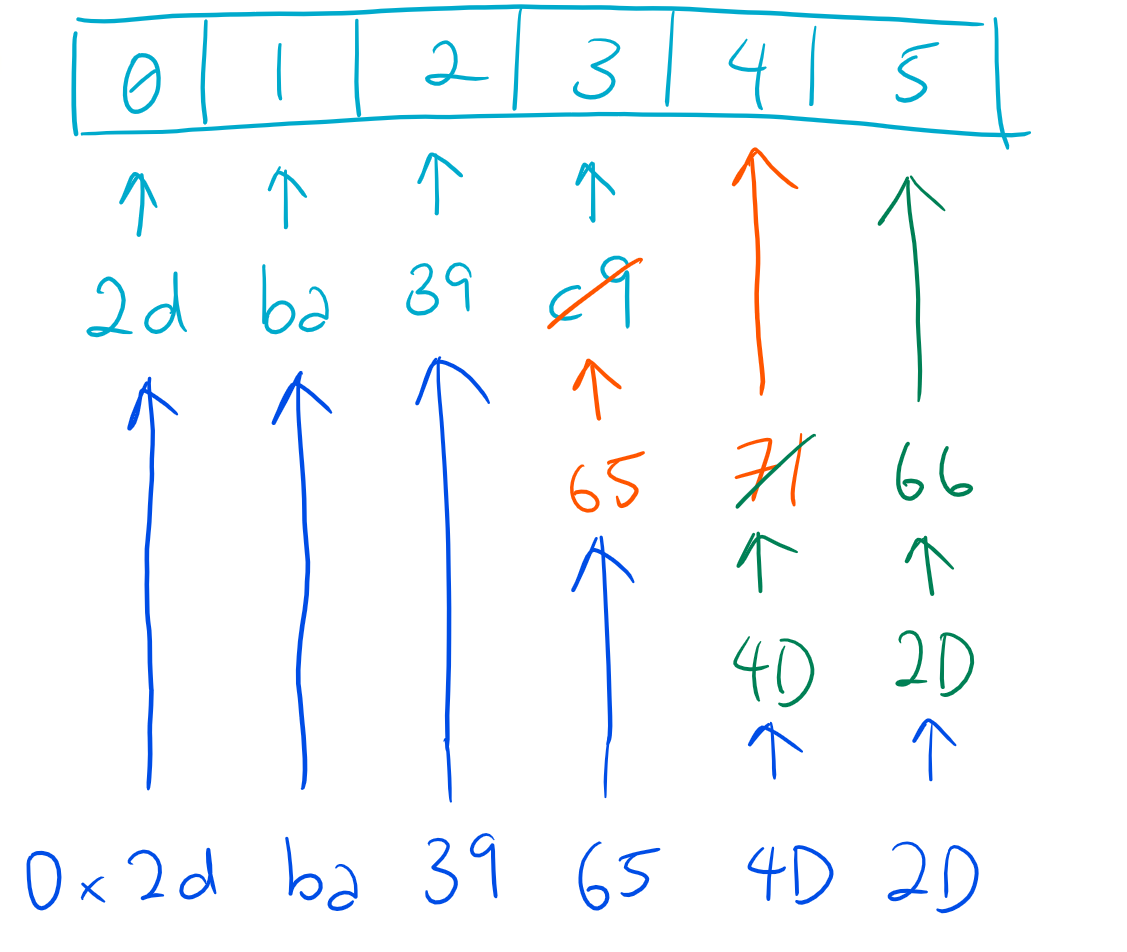 0 1 2 3 4 5
2d ba 39 c9
65 71 66
4D 2D
0x 2d ba 39 65 4D 2D